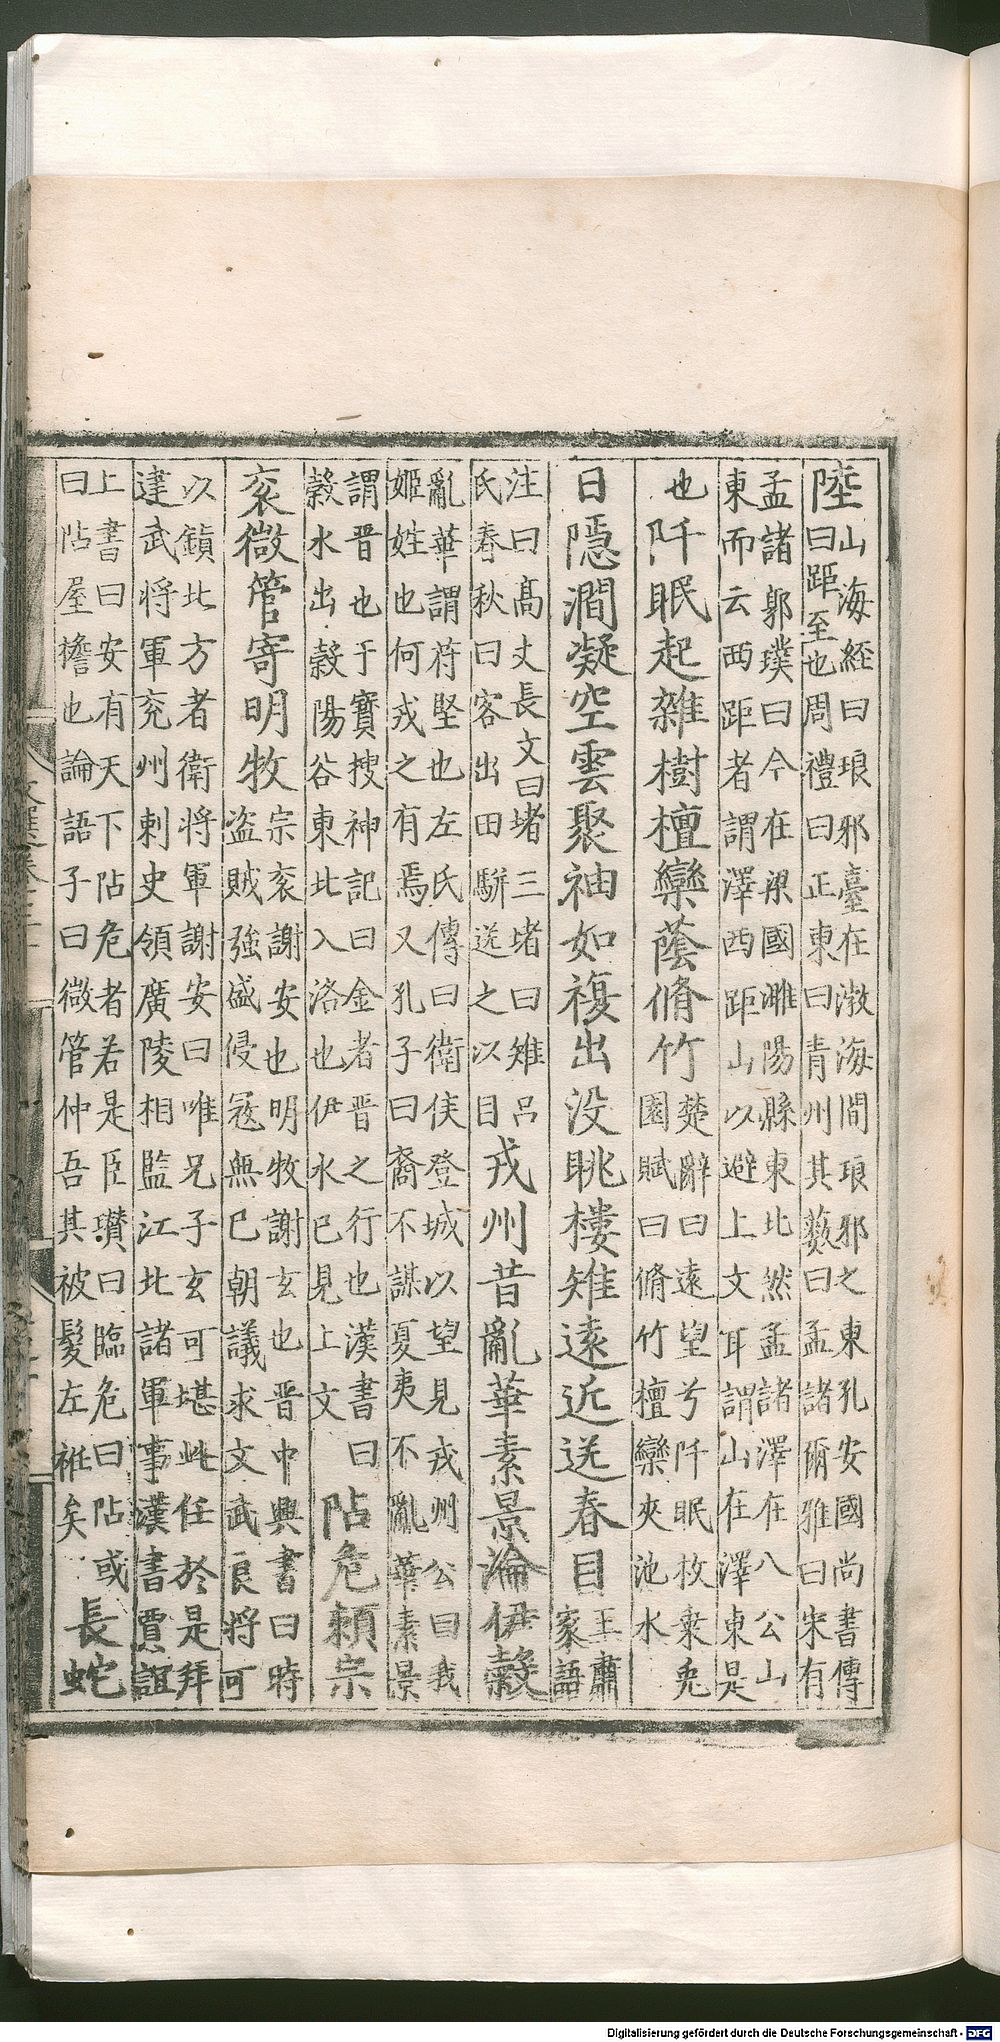 陸
山海經曰琅邪臺在渤海間琅邪之東孔安國尚書傳
曰距至也周禮曰正東曰青州其藪曰孟諸爾雅曰宋有
孟諸郭璞曰今在梁國濉陽縣東北然孟諸澤在八公山
東而云西距者謂澤西距山以避上文耳謂山在澤東是
也
阡眠起雜樹檀欒蔭脩竹
楚辭曰遠望兮阡眠枚乗兎
園賦曰脩竹檀欒夾池水
日隱澗凝空雲聚岫如複出没眺樓雉遠近送春目
王肅
家語
注曰高丈長文曰堵三堵曰雉吕
氏春秋曰客出田駢送之以目
戎州昔亂華素景淪伊穀
亂華謂苻堅也左氏傳曰衛侯登城以望見戎州公曰我
姬姓也何戎之有焉又孔子曰裔不謀夏夷不亂華素景
謂晋也于寳搜神記曰金者晋之行也漢書曰
穀水出穀陽谷東北入洛也伊水已見上文
阽危頼宗
衮微管寄明牧
宗衮謝安也明牧謝玄也晋中興書曰時
盗賊強盛侵寇無已朝議求文武良將可
以鎮北方者衛將軍謝安曰唯兄子玄可堪此任於是拜
建武将軍兖州刺史領廣陵相監江北諸軍事漢書賈誼
上書曰安有天下阽危者若是臣瓚曰臨危曰阽或
曰阽屋檐也論語子曰微管仲吾其被髮左衽矣
長蛇
文選卷
Digitalisierung gefördert durch die Deutsche Forschungsgemeinschaft - DFG